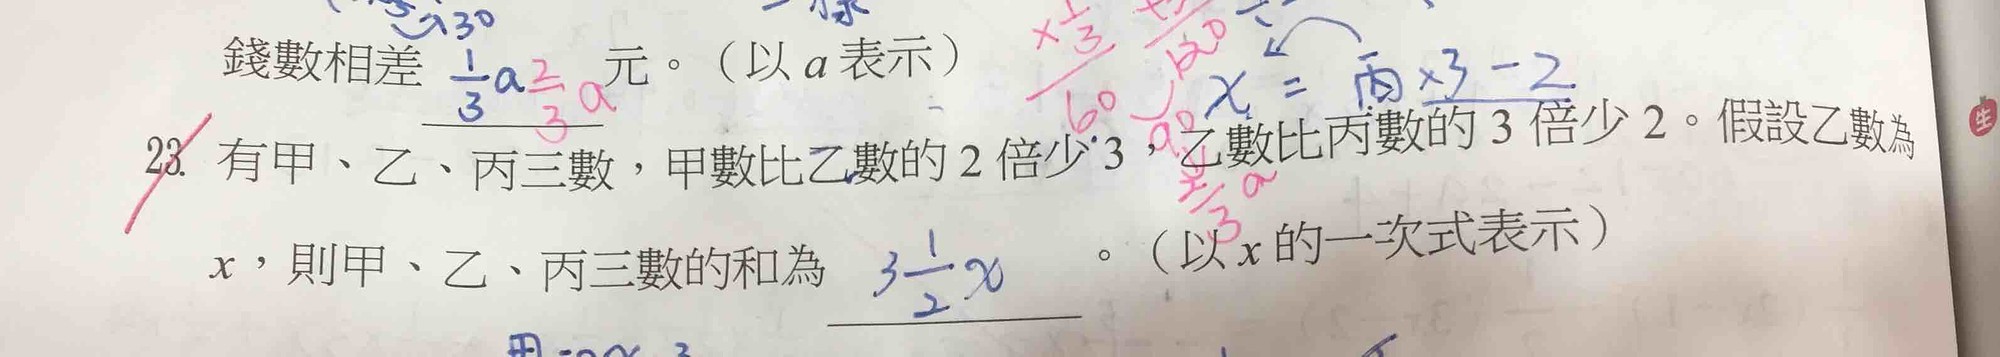 30
錢數相差 1/3 a 2/3 a 元。（以 a 表示）
×1/3
60
120
x = 丙×3－2
23. 有甲、乙、丙三數，甲數比乙數的 2 倍少 3，乙數比丙數的 3 倍少 2。假設乙數為
2/3 a
x，則甲、乙、丙三數的和為 3 1/2 x 。（以 x 的一次式表示）
生